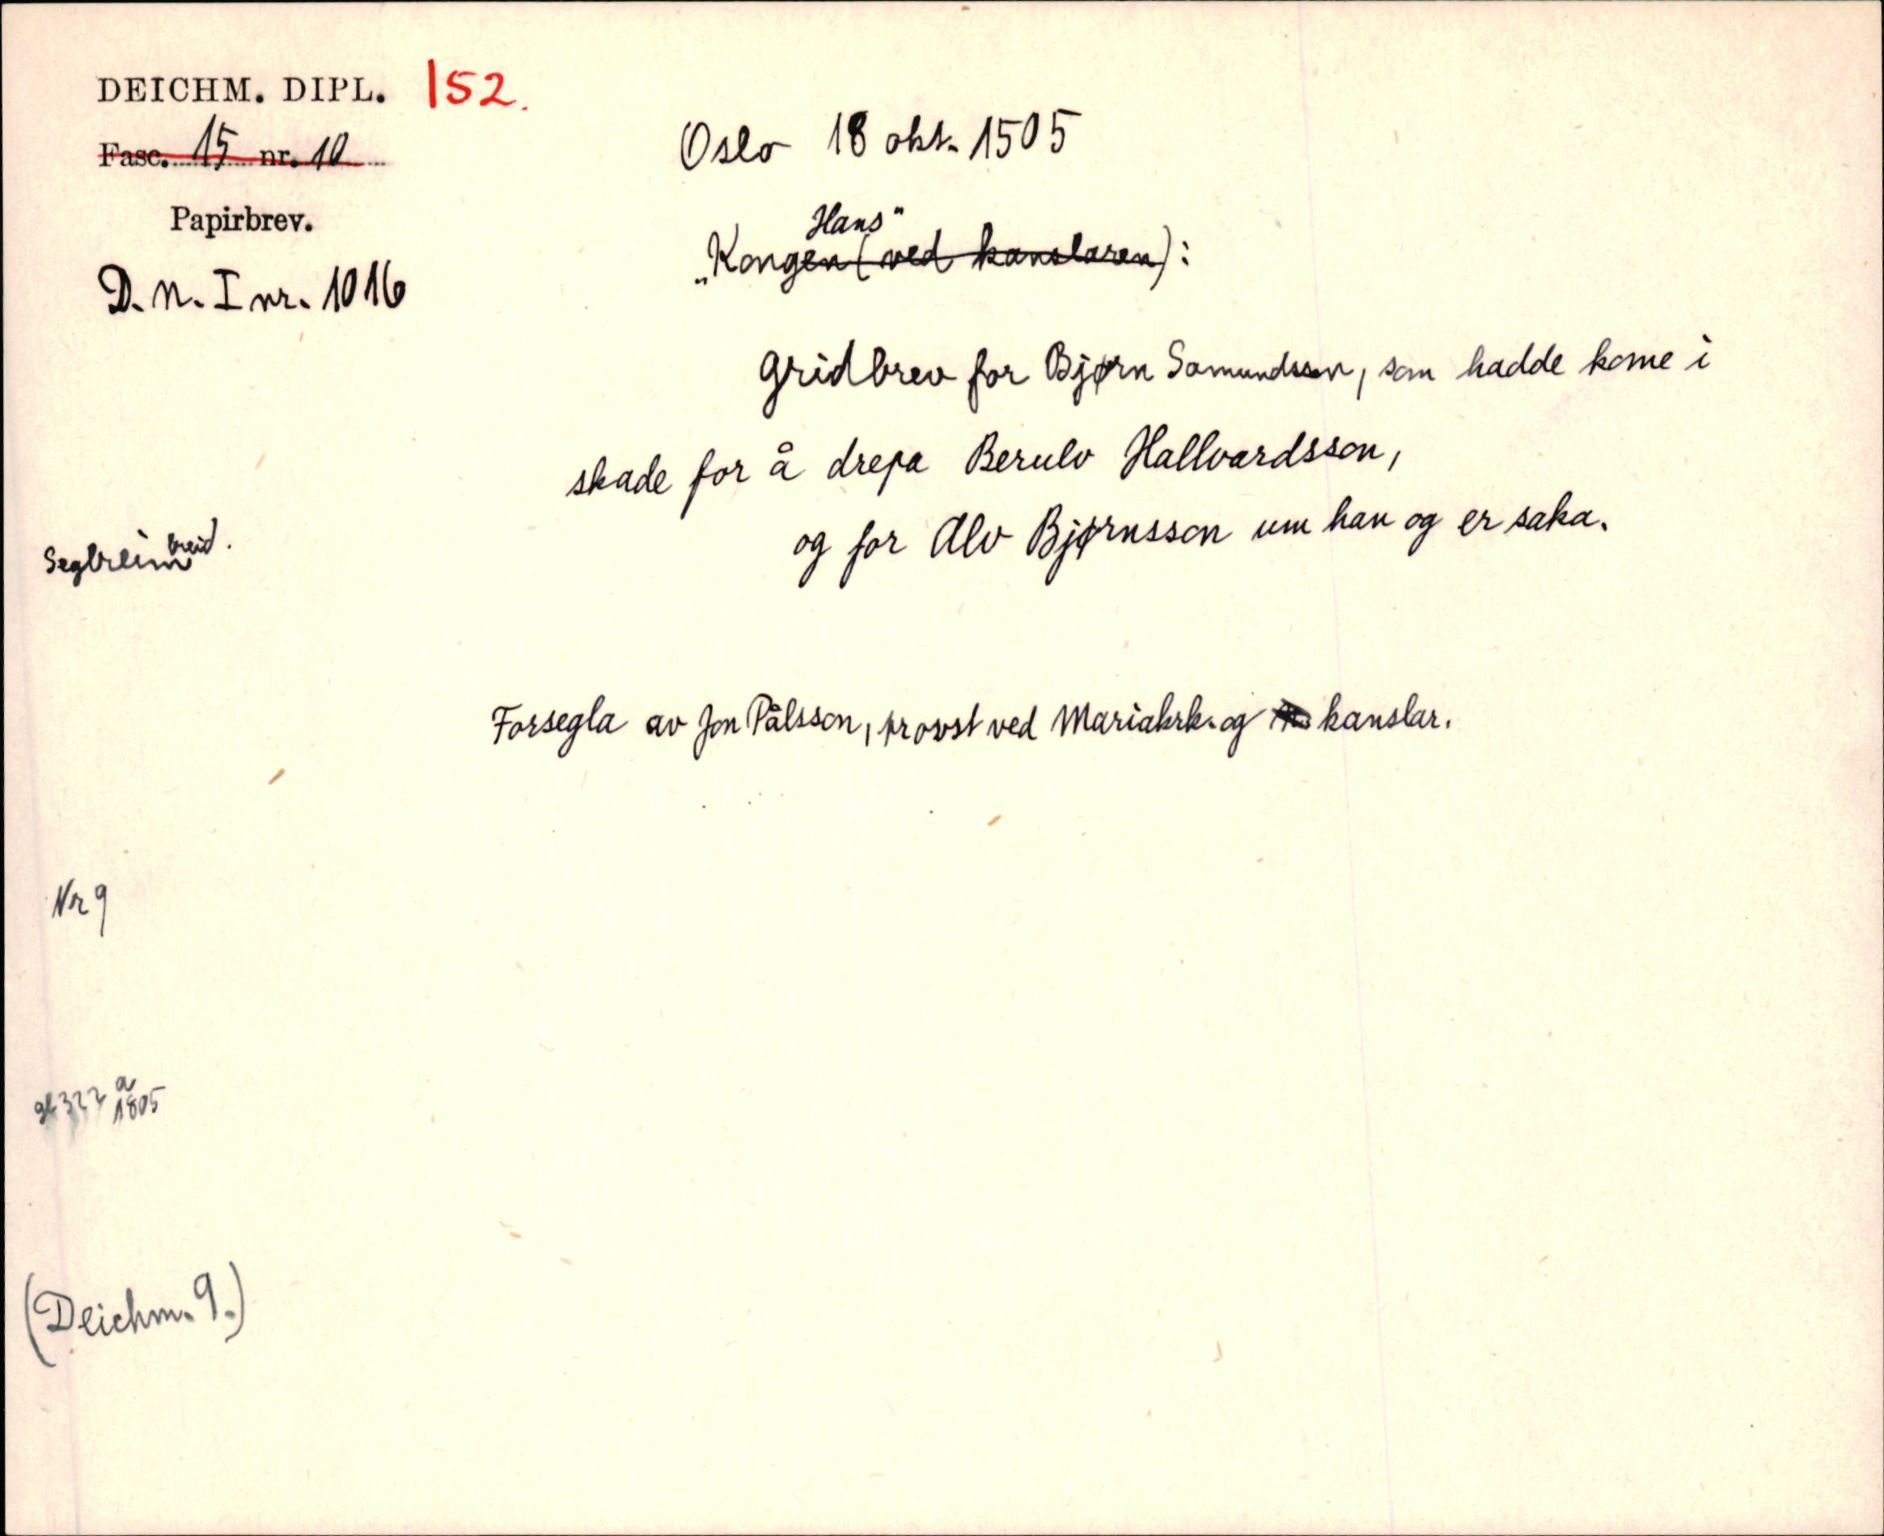 DEICHM. DIPL. 152.
Fasc. 15 nr. 10
Papirbrev.
D.N. I nr. 1016
Oslo 18 okt. 1505
Hans"
„Kongen (ved kanslaren):
Gridbrev for Bjørn Somundsson, som hadde kome i
skade for å drepa Berulv Hallvardsson,
og for Alv Bjørnsson um han og er saka.
breid.
Seglreim
Forsegla av Jon Pålsson, provst ved Mariakrk. og kanslar.
Nr 9
322 a
1805
(Deichm. 9.)